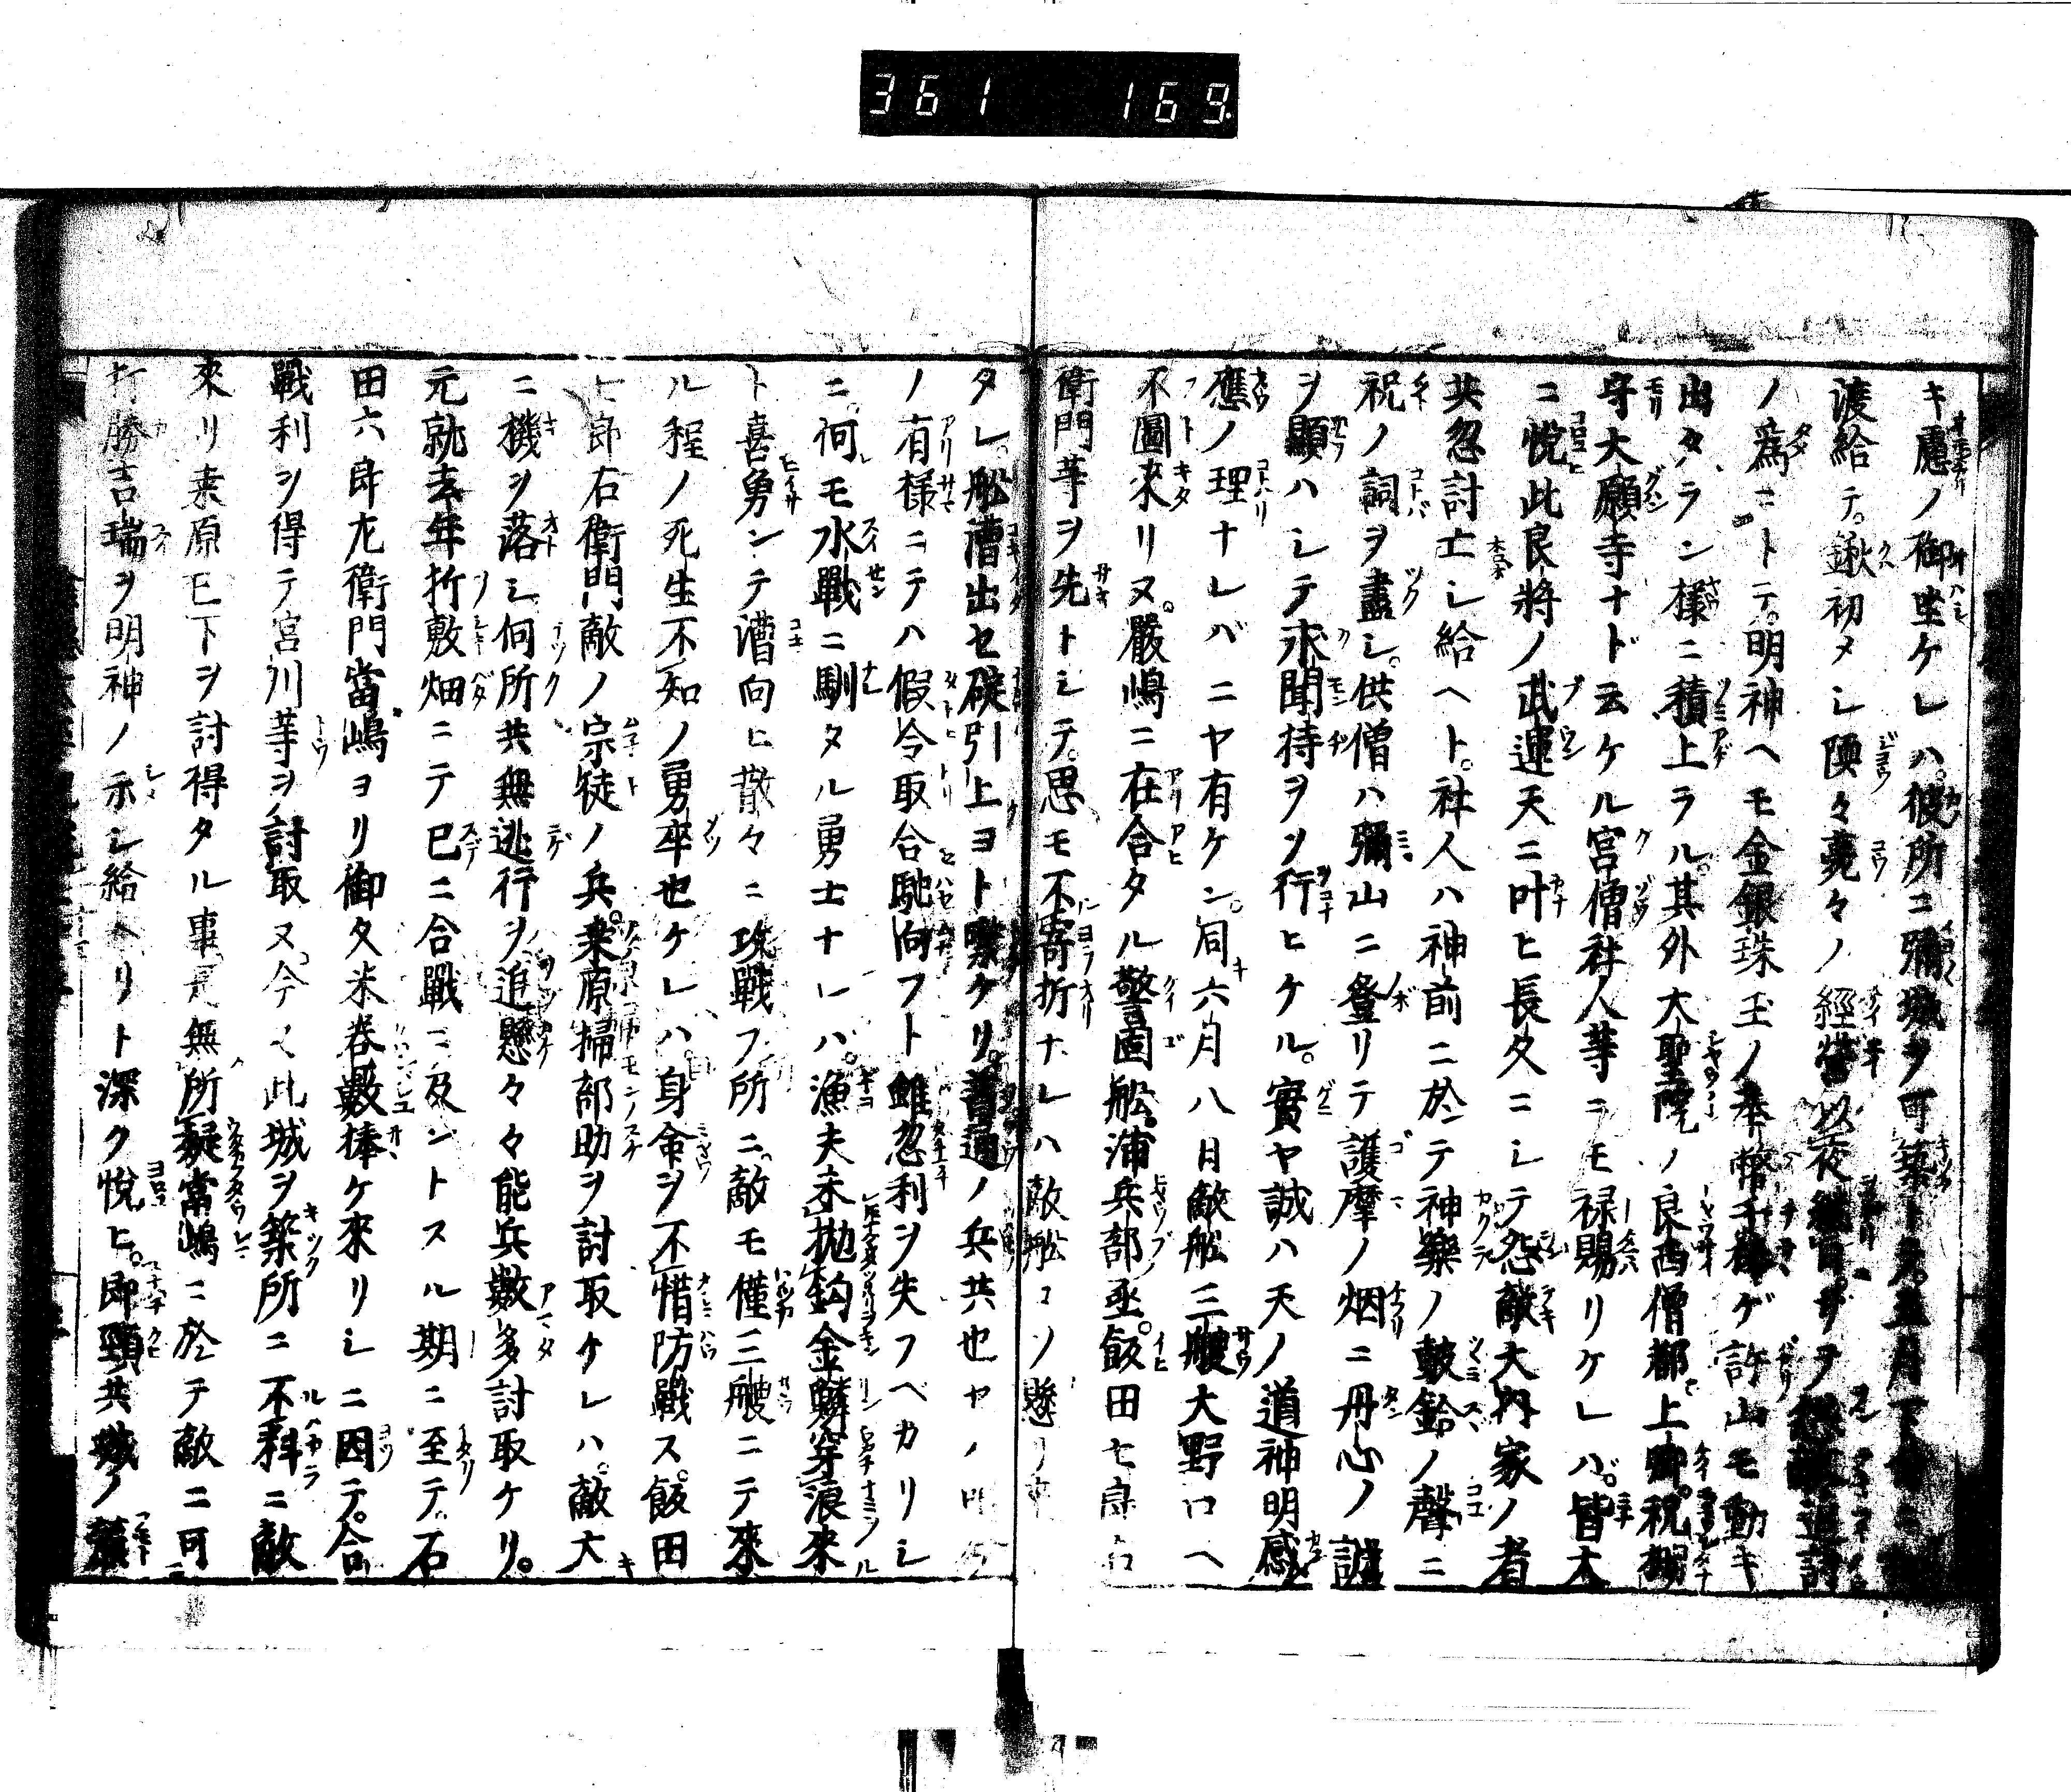 361 169
キ慮ノ御坐ケレハ。彼所ニ彌城ヲ可築ト又。五月下旬ニ
渡給テ。鍬初メシ陾々薨々ノ經營以夜繼日
ノ爲ニトテ。明神ヘモ金銀珠玉ノ奉幣千山モ動キ
出タラン樣ニ積上ラル。其外大聖院ノ良西僧都上卿。祝
守大願寺ナド云ケル宮僧社人等ニモ禄賜リケレバ。皆大
ニ悦此良將ノ武運天ニ叶ヒ長久ニシテ怨敵大内家ノ者
共忽討亡シ給ヘト。社人ハ神前ニ於テ神樂ノ鼓鈴ノ聲ニ
祝ノ詞ヲ盡シ。供僧ハ彌山ニ登リテ護摩ノ烟ニ丹心ノ誠
ヲ顯ハシテ求聞持ヲソ行ヒケル。實ヤ誠ハ天ノ道神明感
應ノ理ナレバニヤ有ケン。同六月八日敵船三艘大野口ヘ
不圖來リヌ。嚴嶋ニ在合タル警固舩。浦兵部丞。飯田七郎右
衛門等ヲ先トシテ。思モ不寄折ナレハ敵舩コソ懸リ
タレ。舩漕出セ碇引上ヨトケリ。普通ノ兵共也ヤ
ノ有様ニテハ假令取合馳向フト雖忽利ヲ失フベカリシ
ニ。何モ水戰ニ馴タル勇士ナレバ。漁夫未抛鈎金鱗穿浪來
ト喜勇ンテ漕向ヒ散々ニ攻戰フ所ニ。敵モ僅三艘ニテ來
ル程ノ死生不知ノ勇卒也ケレハ。身命ヲ不惜防戰ス。飯田
七郎右衛門敵ノ宗徒ノ兵。桒原掃部助ヲ討取ケレハ。敵大
ニ機ヲ落シ何所共無逃行ヲ追懸々々能兵數多討取ケリ。
元就去年折敷畑ニテ已ニ合戰ニ及ントスル期ニ至テ。石
田六郎左衛門當嶋ヨリ御久米巻數捧ケ來リシニ因テ。合
戰利ヲ得テ宮川等ヲ討取ヌ。今又此城ヲ築所ニ不料ニ敵
來リ桒原已下ヲ討得タル事是無所疑當嶋ニ於テ敵ニ可
打勝吉瑞ヲ明神ノ示シ給ヘリト深ク悦ヒ。即頸共城ノ麓